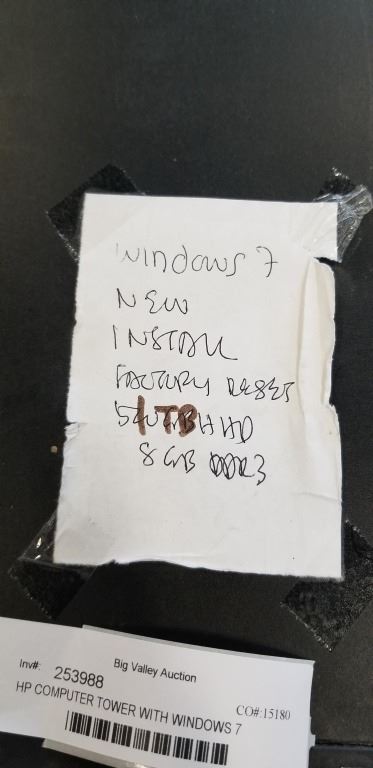 Windows 7
NEW
INSTALL
FACTORY RESET
1TB HHD
8 GB DDR3
Inv#: 253988 Big Valley Auction
CO#:15180
HP COMPUTER TOWER WITH WINDOWS 7